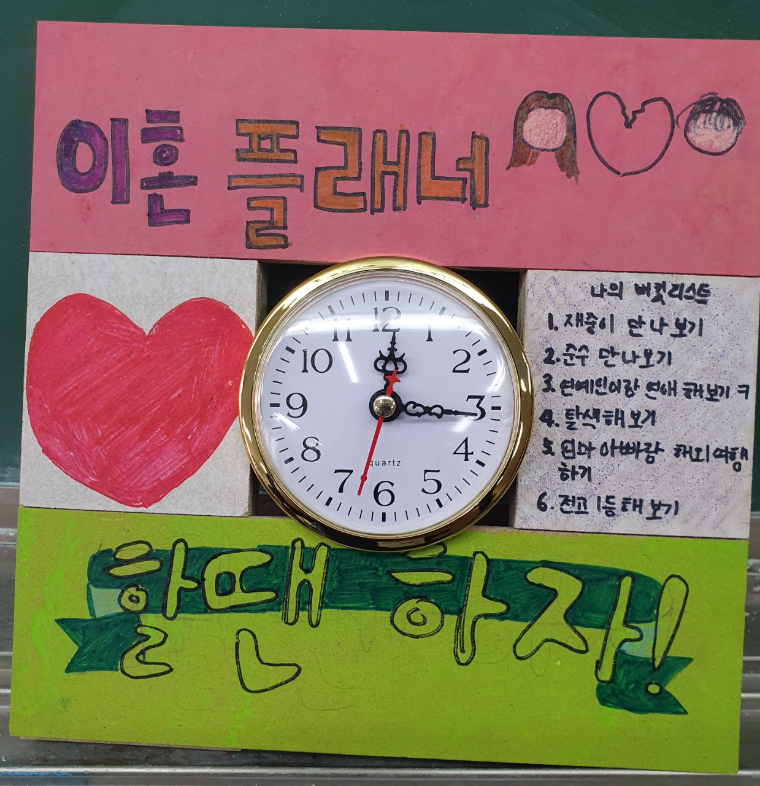 이혼 플래너
나의 버킷리스트
1. 재줄이 만나보기
2. 준수 만나보기
3. 연예인이랑 연애 해보기 ㅋ
4. 탈색해보기
5. 엄마 아빠랑 해외여행
하기
6. 전교 1등해보기
12
1
2
3
4
5
6
7
8
9
10
11
quartz
할 땐 하자!